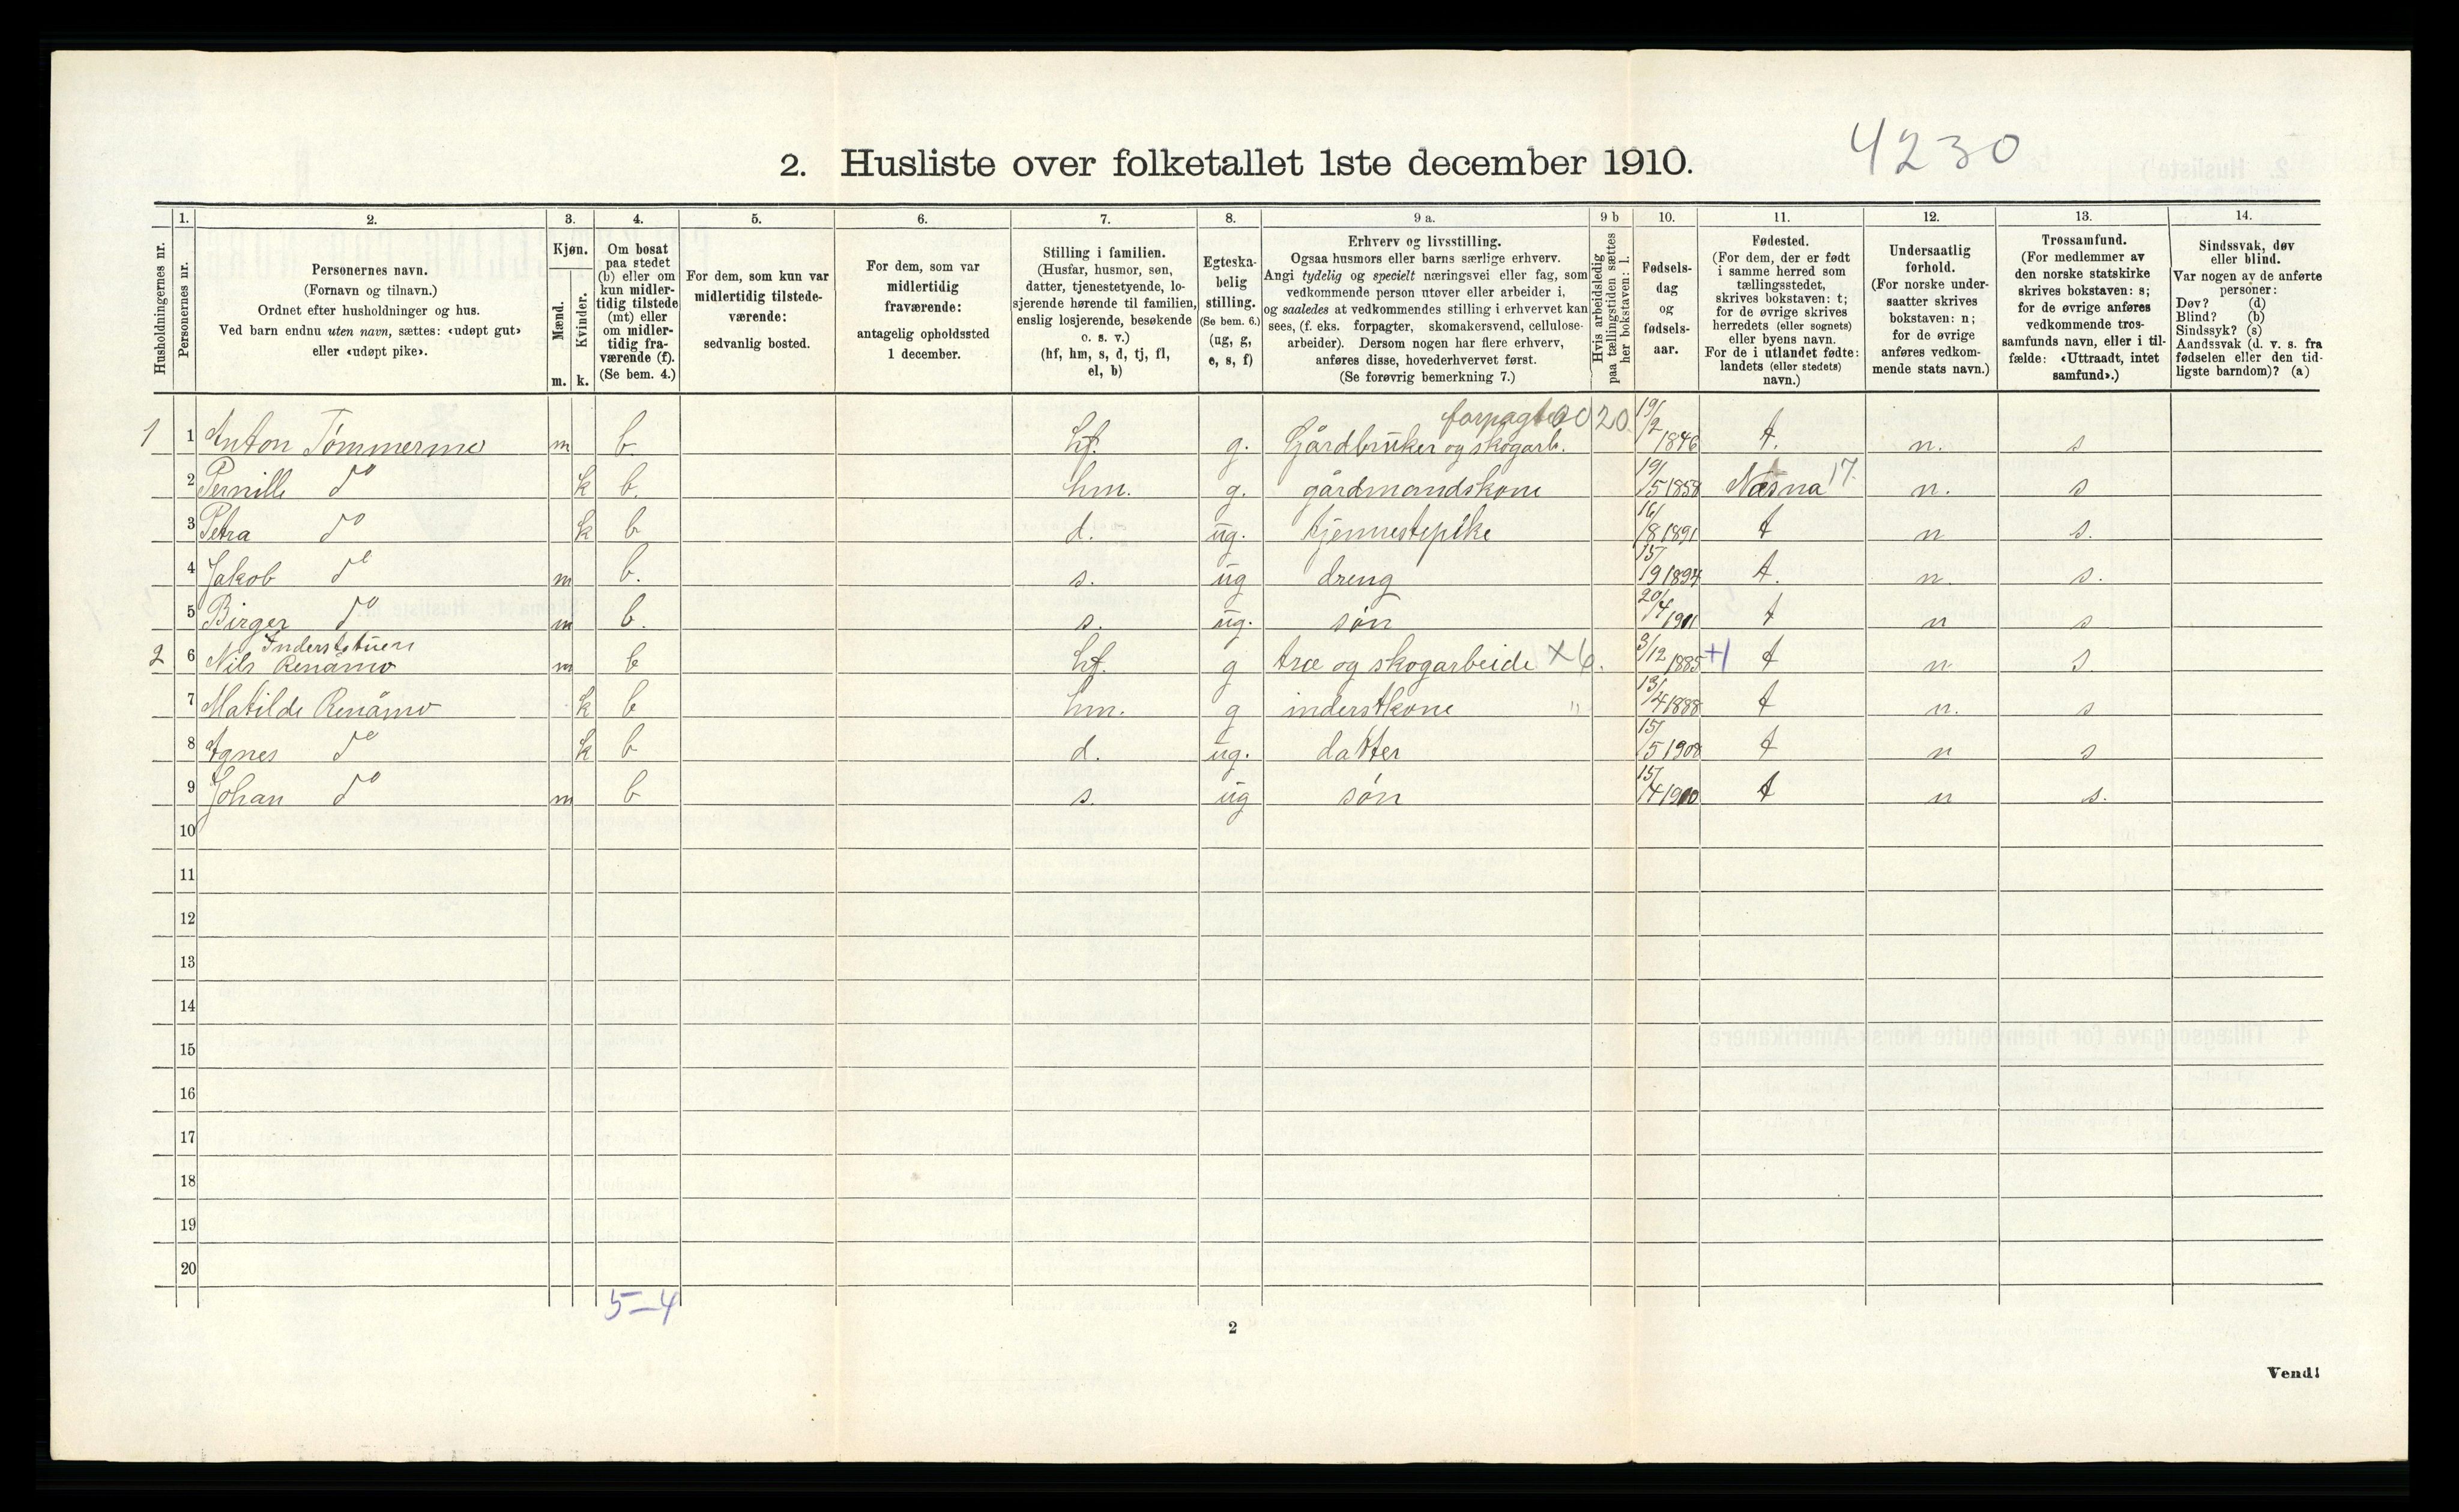 4230
2. Husliste over folketallet 1ste december 1910.
Husholdningernes nr.
1.
Personernes nr.
2.
Personernes navn.
(Fornavn og tilnavn.)
Ordnet efter husholdninger og hus.
Ved barn endnu uten navn, sættes: «udøpt gut»
eller «udøpt pike».
3.
Kjøn.
Mænd.
Kvinder.
m. k.
4.
Om bosat
paa stedet
(b) eller om
kun midler-
tidig tilstede
(mt) eller
om midler-
tidig fra-
værende (f).
(Se bem. 4.)
5.
For dem, som kun var
midlertidig tilstede-
værende:
sedvanlig bosted.
6.
For dem, som var
midlertidig
fraværende:
antagelig opholdssted
1 december.
7.
Stilling i familien.
(Husfar, husmor, søn,
datter, tjenestetyende, lo-
sjerende hørende til familien,
enslig losjerende, besøkende
o. s. v.)
(hf, hm, s, d, tj, fl,
el, b)
8.
Egteska-
belig
stilling.
(Se bem. 6.)
(ug, g,
e, s, f)
9 a.
Erhverv og livsstilling.
Ogsaa husmors eller barns særlige erhverv.
Angi tydelig og specielt næringsvei eller fag, som
vedkommende person utøver eller arbeider i,
og saaledes at vedkommendes stilling i erhvervet kan
sees, (f. eks. forpagter, skomakersvend, cellulose-
arbeider). Dersom nogen har flere erhverv,
anføres disse, hovederhvervet først.
(Se forøvrig bemerkning 7.)
9 b
Hvis arbeidsledig
paa tællingstiden sættes
her bokstaven: l.
10.
Fødsels-
dag
og
fødsels-
aar.
11.
Fødested.
(For dem, der er født
i samme herred som
tællingsstedet,
skrives bokstaven: t;
for de øvrige skrives
herredets (eller sognets)
eller byens navn.
For de i utlandet fødte:
landets (eller stedets)
navn.)
12.
Undersaatlig
forhold.
(For norske under-
saatter skrives
bokstaven: n;
for de øvrige
anføres vedkom-
mende stats navn.)
13.
Trossamfund.
(For medlemmer av
den norske statskirke
skrives bokstaven: s;
for de øvrige anføres
vedkommende tros-
samfunds navn, eller i til-
fælde: «Uttraadt, intet
samfund».)
14.
Sindssvak, døv
eller blind.
Var nogen av de anførte
personer:
Døv? (d)
Blind? (b)
Sindssyk? (s)
Aandssvak (d. v. s. fra
fødselen eller den tid-
ligste barndom)? (a)
1 1 Anton Tømmermo m b. hf. g. Gårdbruker og skogarb. 20 19/2 1846 t. n. s
2 Pernille do k b. hm. g. gårdmandskone 19/5 1858 Næsna 17. n. s
3 Petra do k b d. ug. tjennestepike 16/8 1891 t n s.
4 Jakob do m b. s. ug dreng 15/9 1894 t. n. s.
5 Birger do m b. s. ug. søn 20/4 1901 t n s
Inderststuen
2 6 Nils Renåmo m b hf. g træ og skogarbeide X 6. 3/12 1885 +1 t n s
7 Matilde Renåmo k b hm. g inderstkone " 13/4 1888 t n. s
8 Agnes do k b d. ug. datter 15/5 1908 t n s
9 Johan do m b s. ug søn 15/4 1910 t n s.
10
11
12
13
14
15
16
17
18
19
20
5-4
2
Vend!